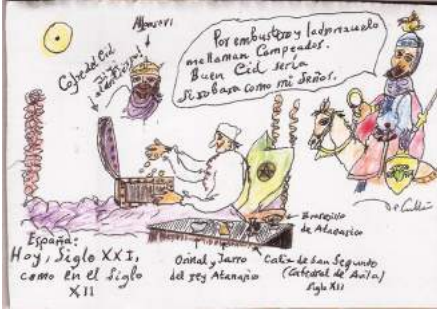 Alfonso VI
Cofre del Cid
Por embustero y ladronzuelo
me llaman Campeador.
Buen Cid sería
si robara como mi Señor.
España:
Hoy, Siglo XXI,
como en el Siglo
XII
Orinal y Jarro
del rey Atanagio
Braserillo
de Atanasico
Caliz de San Segundo
(Catedral de Avila)
Siglo XII